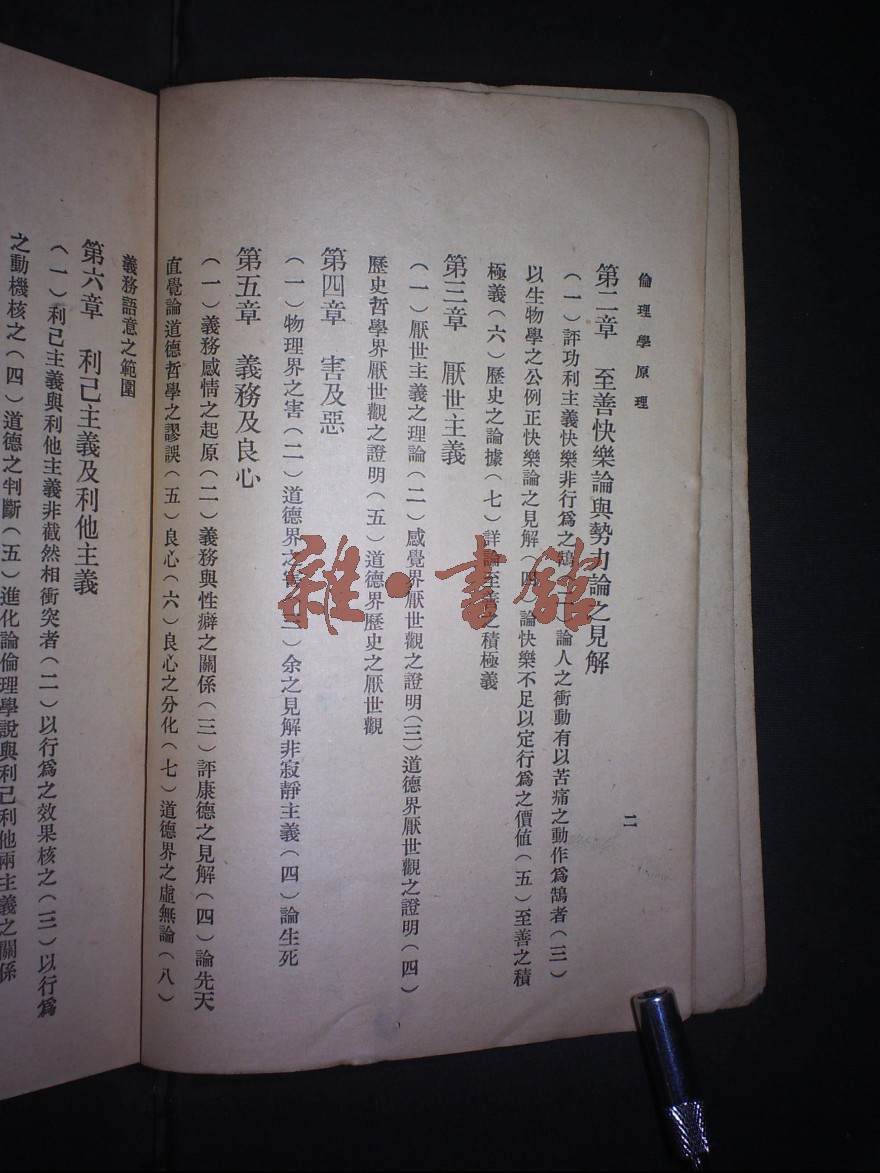 倫理學原理
二
第二章　至善快樂論與勢力論之見解
（一）評功利主義快樂非行爲之鵠
論人之衝動有以苦痛之動作爲鵠者（三）
以生物學之公例正快樂論之見解（四）論快樂不足以定行爲之價値（五）至善之積
極義（六）歷史之論據（七）詳論至善之積極義
第三章　厭世主義
（一）厭世主義之理論（二）感覺界厭世觀之證明（三）道德界厭世觀之證明（四）
歷史哲學界厭世觀之證明（五）道德界歷史之厭世觀
第四章　害及惡
（一）物理界之害（二）道德界之害（三）余之見解非寂靜主義（四）論生死
第五章　義務及良心
（一）義務感情之起原（二）義務與性癖之關係（三）評康德之見解（四）論先天
直覺論道德哲學之謬誤（五）良心（六）良心之分化（七）道德界之虛無論（八）
義務語意之範圍
第六章　利己主義及利他主義
（一）利己主義與利他主義非截然相衝突者（二）以行爲之效果核之（三）以行爲
之動機核之（四）道德之判斷（五）進化論倫理學說與利己利他兩主義之關係
雜·書館